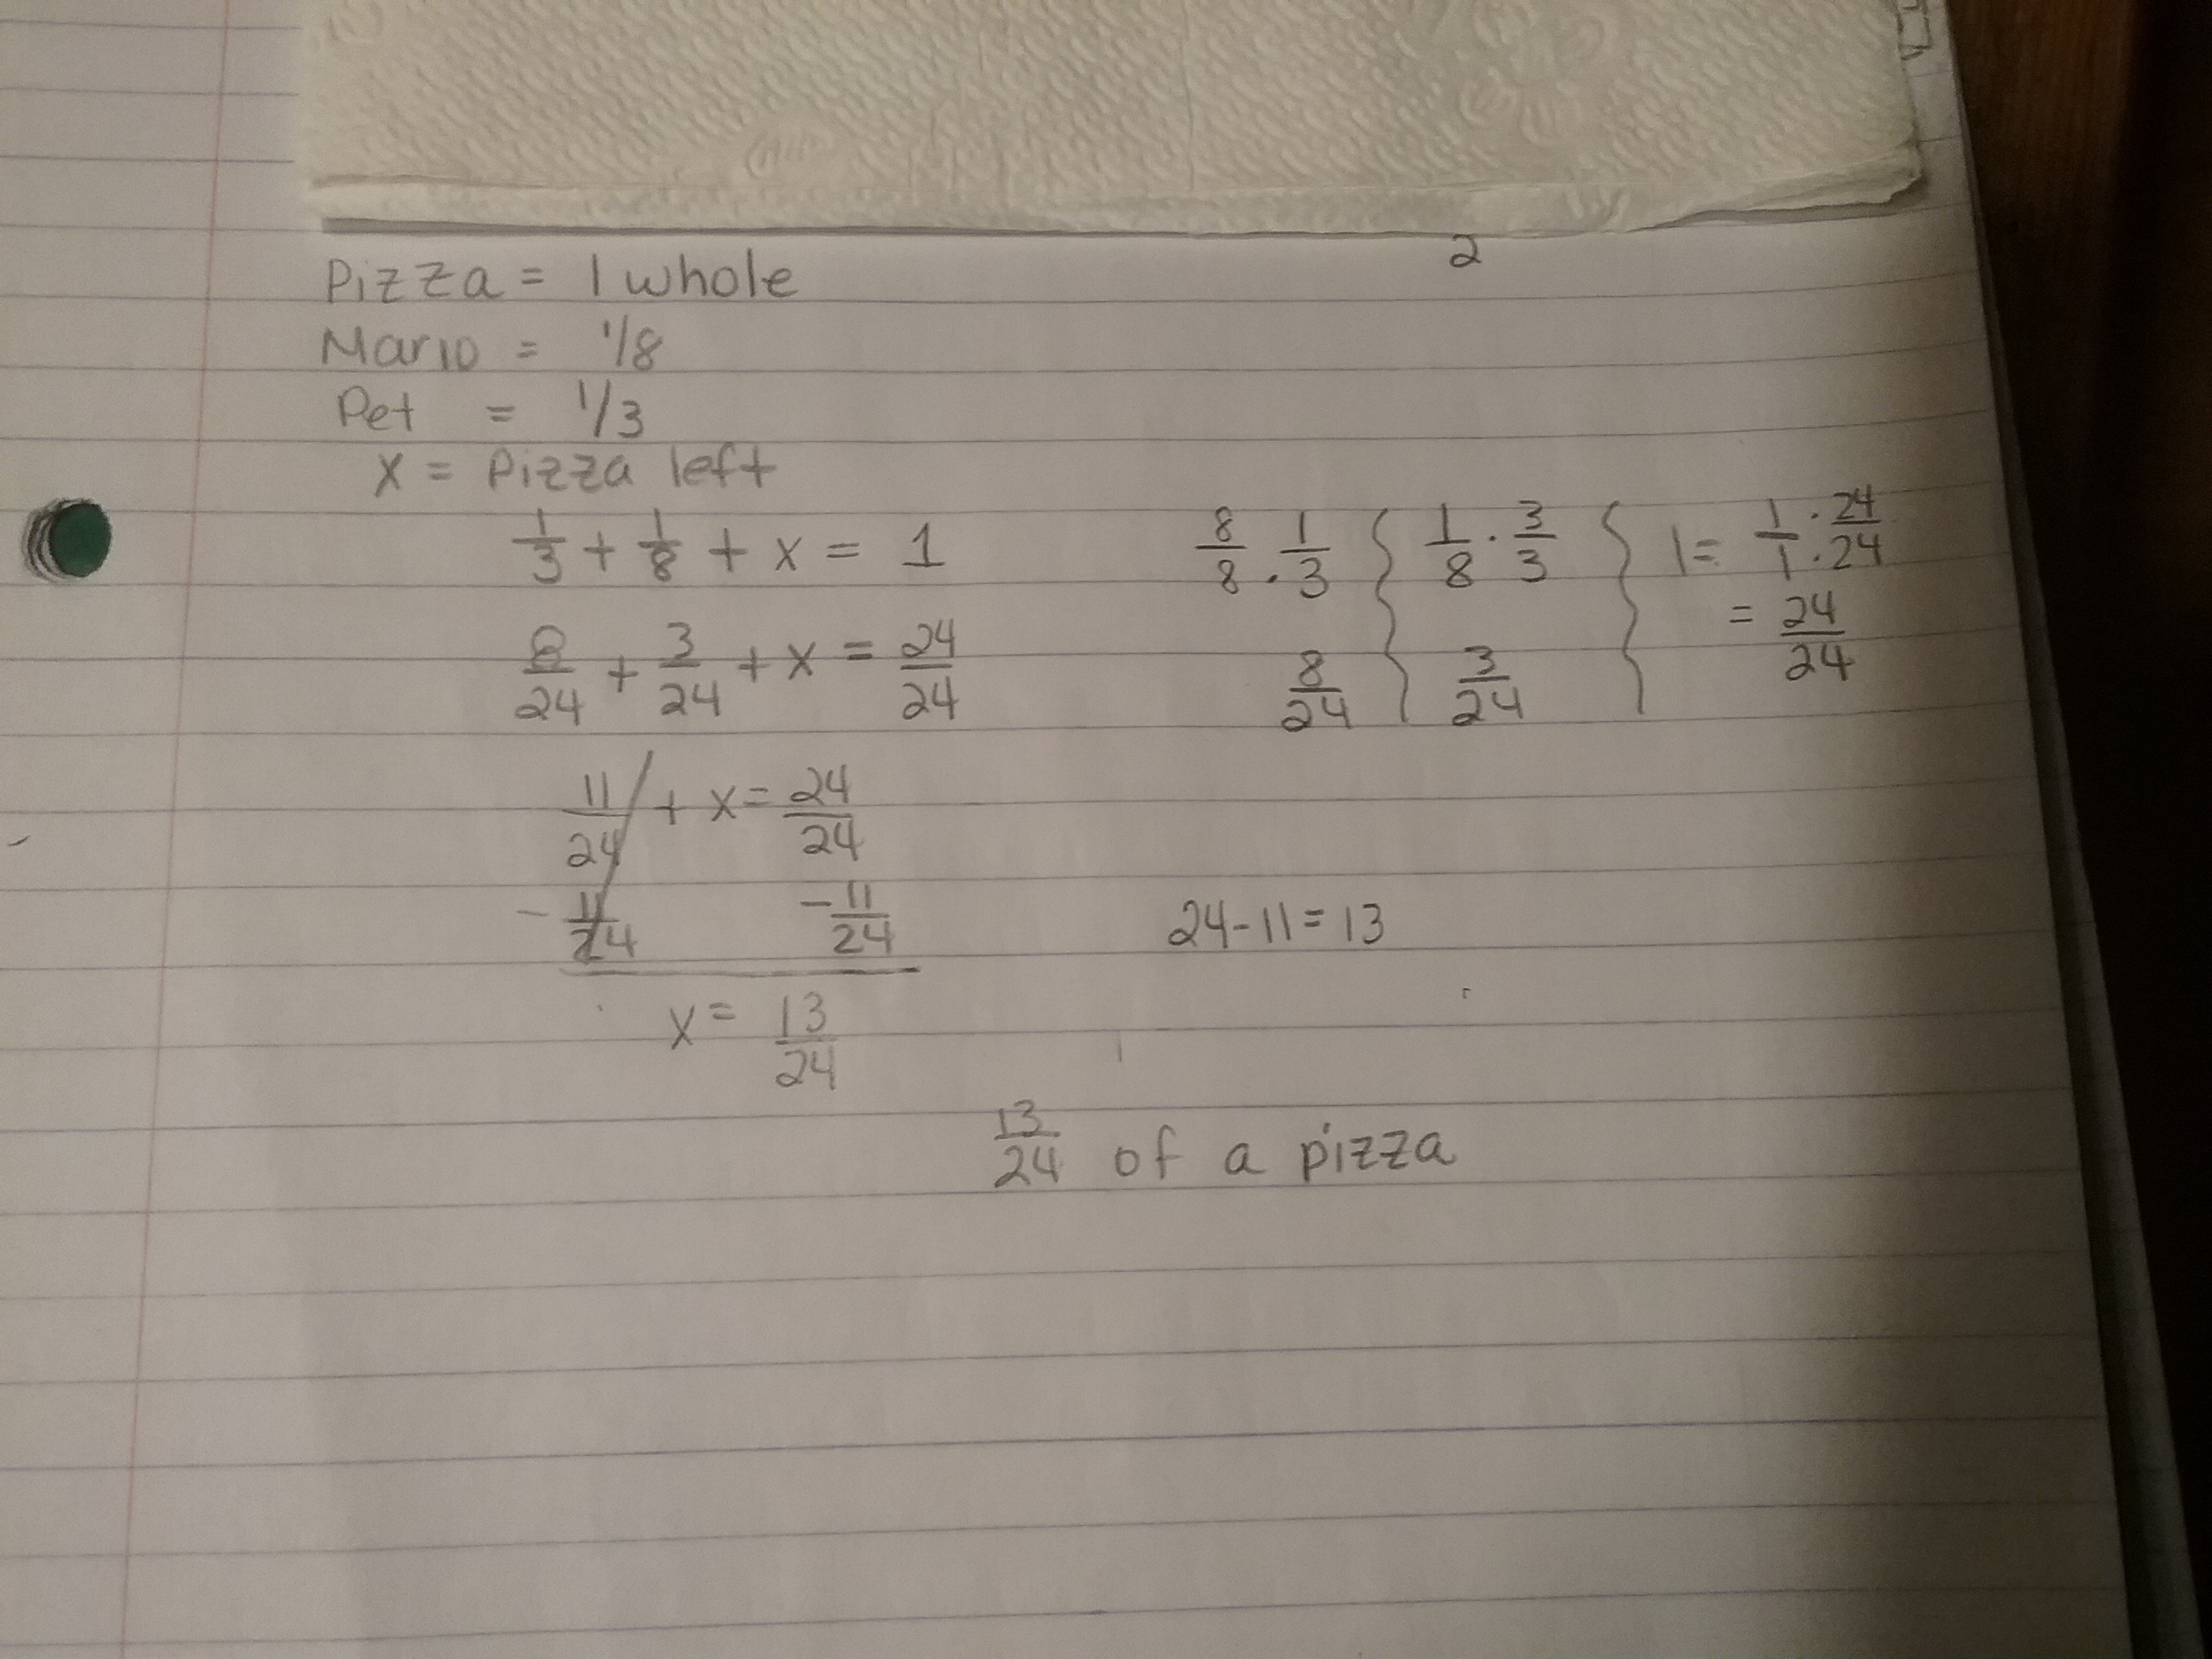 2
Pizza = 1 whole
Mario = 1/8
Pet = 1/3
x = Pizza left
1/3 + 1/8 + x = 1
8/24 + 3/24 + x = 24/24
11/24 + x = 24/24
- 11/24 - 11/24
x = 13/24
8/8 · 1/3 { 1/8 · 3/3 { 1 = 1/1 · 24/24
8/24 3/24 = 24/24
24 - 11 = 13
13/24 of a pizza